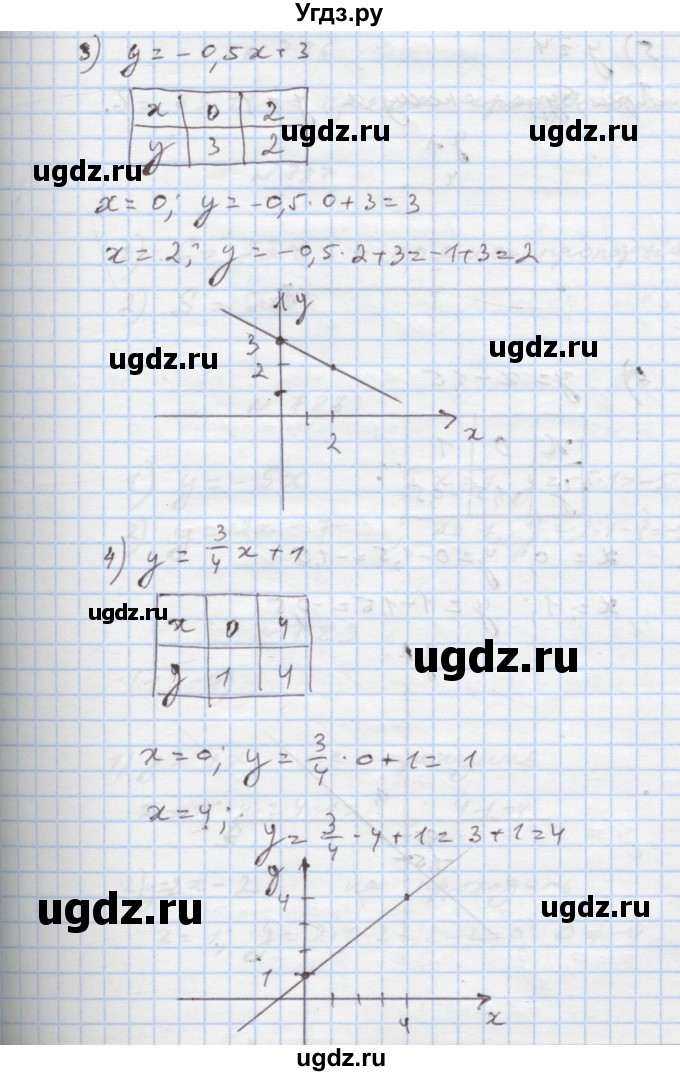 Угдз.ру
3) y = -0,5x+3
x 0 2
ugdz.ru
y 3 2
ugdz.ru
x = 0; y = -0,5·0+3=3
x = 2; y = -0,5·2+3=-1+3=2
y
ugdz.ru
3
ugdz.ru
2
2
x
4) y = 3/4 x + 1
ugdz.ru
ugdz.ru
x 0 4
ugdz.ru
y 1 4
x=0; y = 3/4 · 0+1= 1
x=4;
y= 3/4 · 4+1=3+1=4
y
4
ugdz.ru
ugdz.ru
1
4
x
ugdz.ru